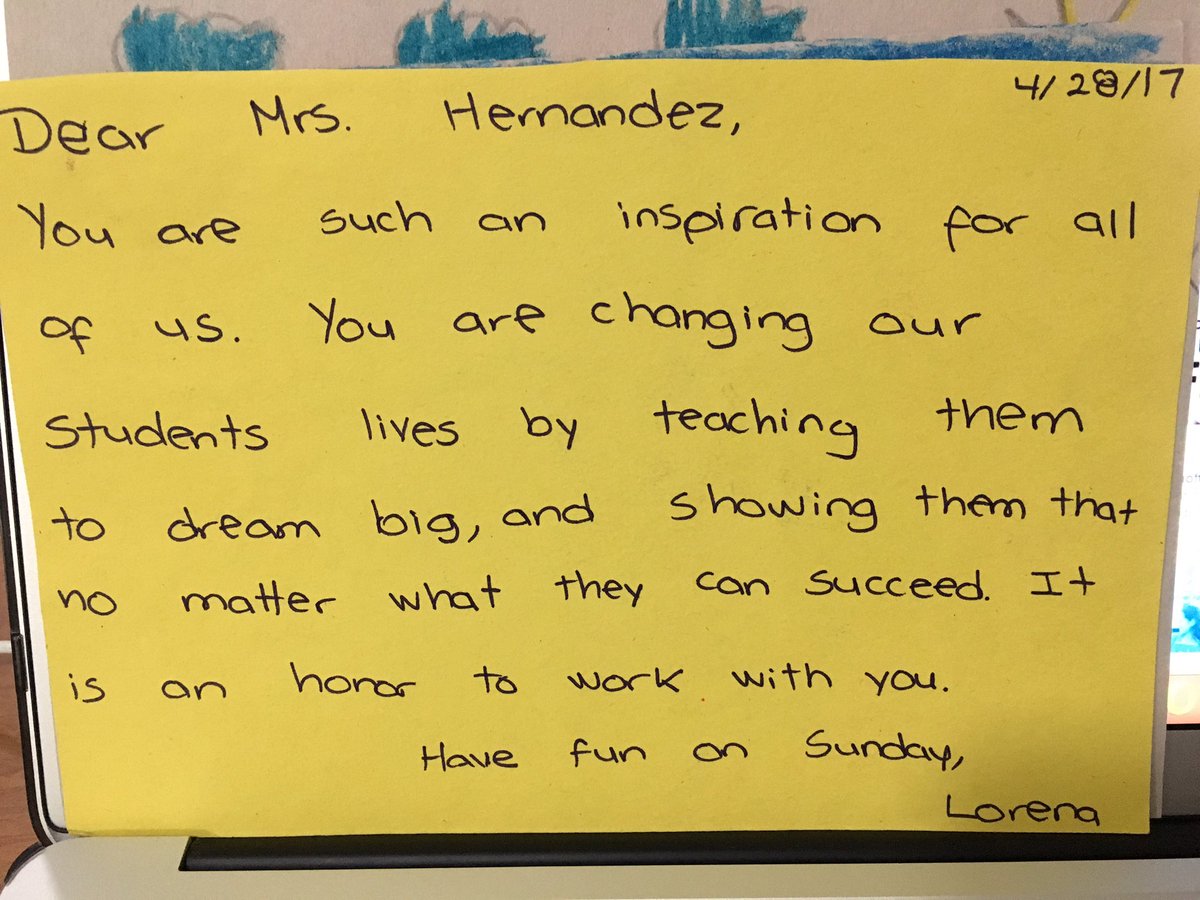 4/28/17
Dear Mrs. Hernandez,
You are such an inspiration for all
of us. You are changing our
students lives by teaching them
to dream big, and showing them that
no matter what they can succeed. It
is an honor to work with you.
Have fun on Sunday,
Lorena